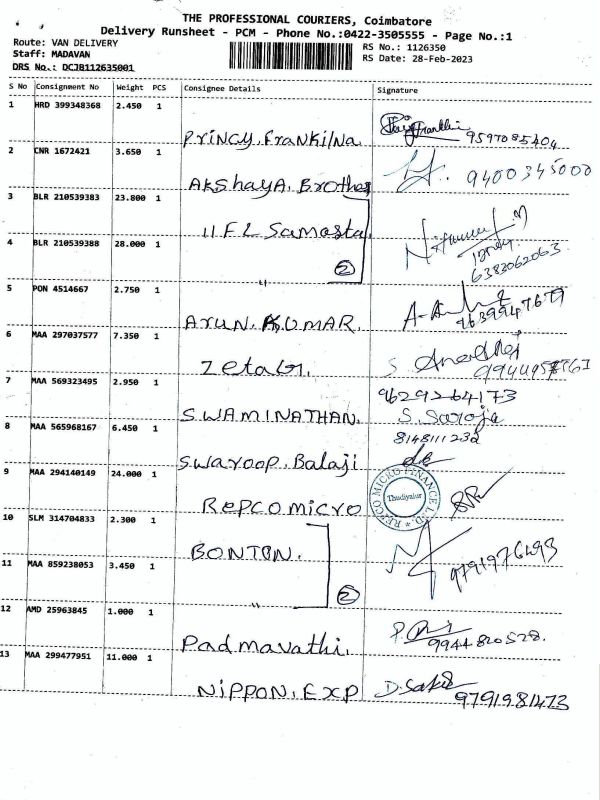 THE PROFESSIONAL COURIERS, Coimbatore
Delivery Runsheet - PCM - Phone No.:0422-3505555 - Page No.:1
Route: VAN DELIVERY
RS No.: 1126350
Staff: MADAVAN
RS Date: 28-Feb-2023
DRS No.: DCJB112635001
S No Consignment No Weight PCS Consignee Details Signature
1 HRD 399348368 2.450 1
Princy.Frankilna 9597085404
2 CNR 1672421 3.650 1
Akshaya.Brothes 9400345000
3 BLR 210539383 23.800 1
IIFL Samosta
4 BLR 210539388 28.000 1
② 6383062063
5 PON 4514667 2.750 1
ARUN.KUMAR
6 MAA 297037577 7.350 1
7 MAA 569323495 2.950 1
9629264173
SWAMINATHAN. S. Saroja
8 MAA 565968167 6.450 1
8148111232
Swaroop.Balaji
9 MAA 294140149 24.000 1
REPCO MICRO FINANCE LTD.
Thudiyalur
REPCO MICRO
10 SLM 314704833 2.300 1
BONTON.
11 MAA 859238053 3.450 1
② 9791976193
12 AMD 25963845 1.000 1
Padmavathi. 9944820528.
13 MAA 299477951 11.000 1
NIPPON.EXP 9791981473